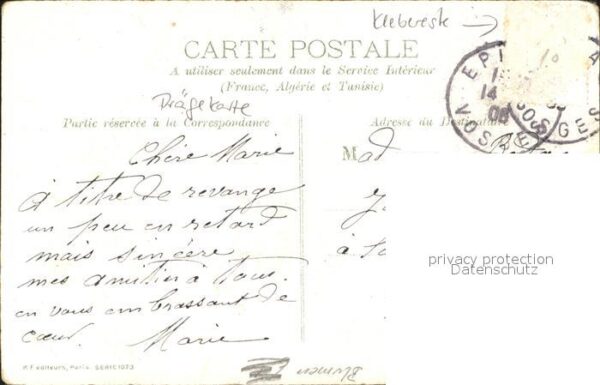 Klebereste
CARTE POSTALE
A utiliser seulement dans le Service Intérieur
(France, Algérie et Tunisie)
Prägekarte
Partie réservée à la Correspondance
Adresse du Destinataire
EPI
14
08
VOSGES
10
Chère Marie
A titre de revange
un peu en retard
mais sincère
mes amitiés à tous.
en vous embrassant de
cœur. Marie
Mad
à
privacy protection
Datenschutz
K.F. éditeurs, Paris. SERIE 1073
Blumen